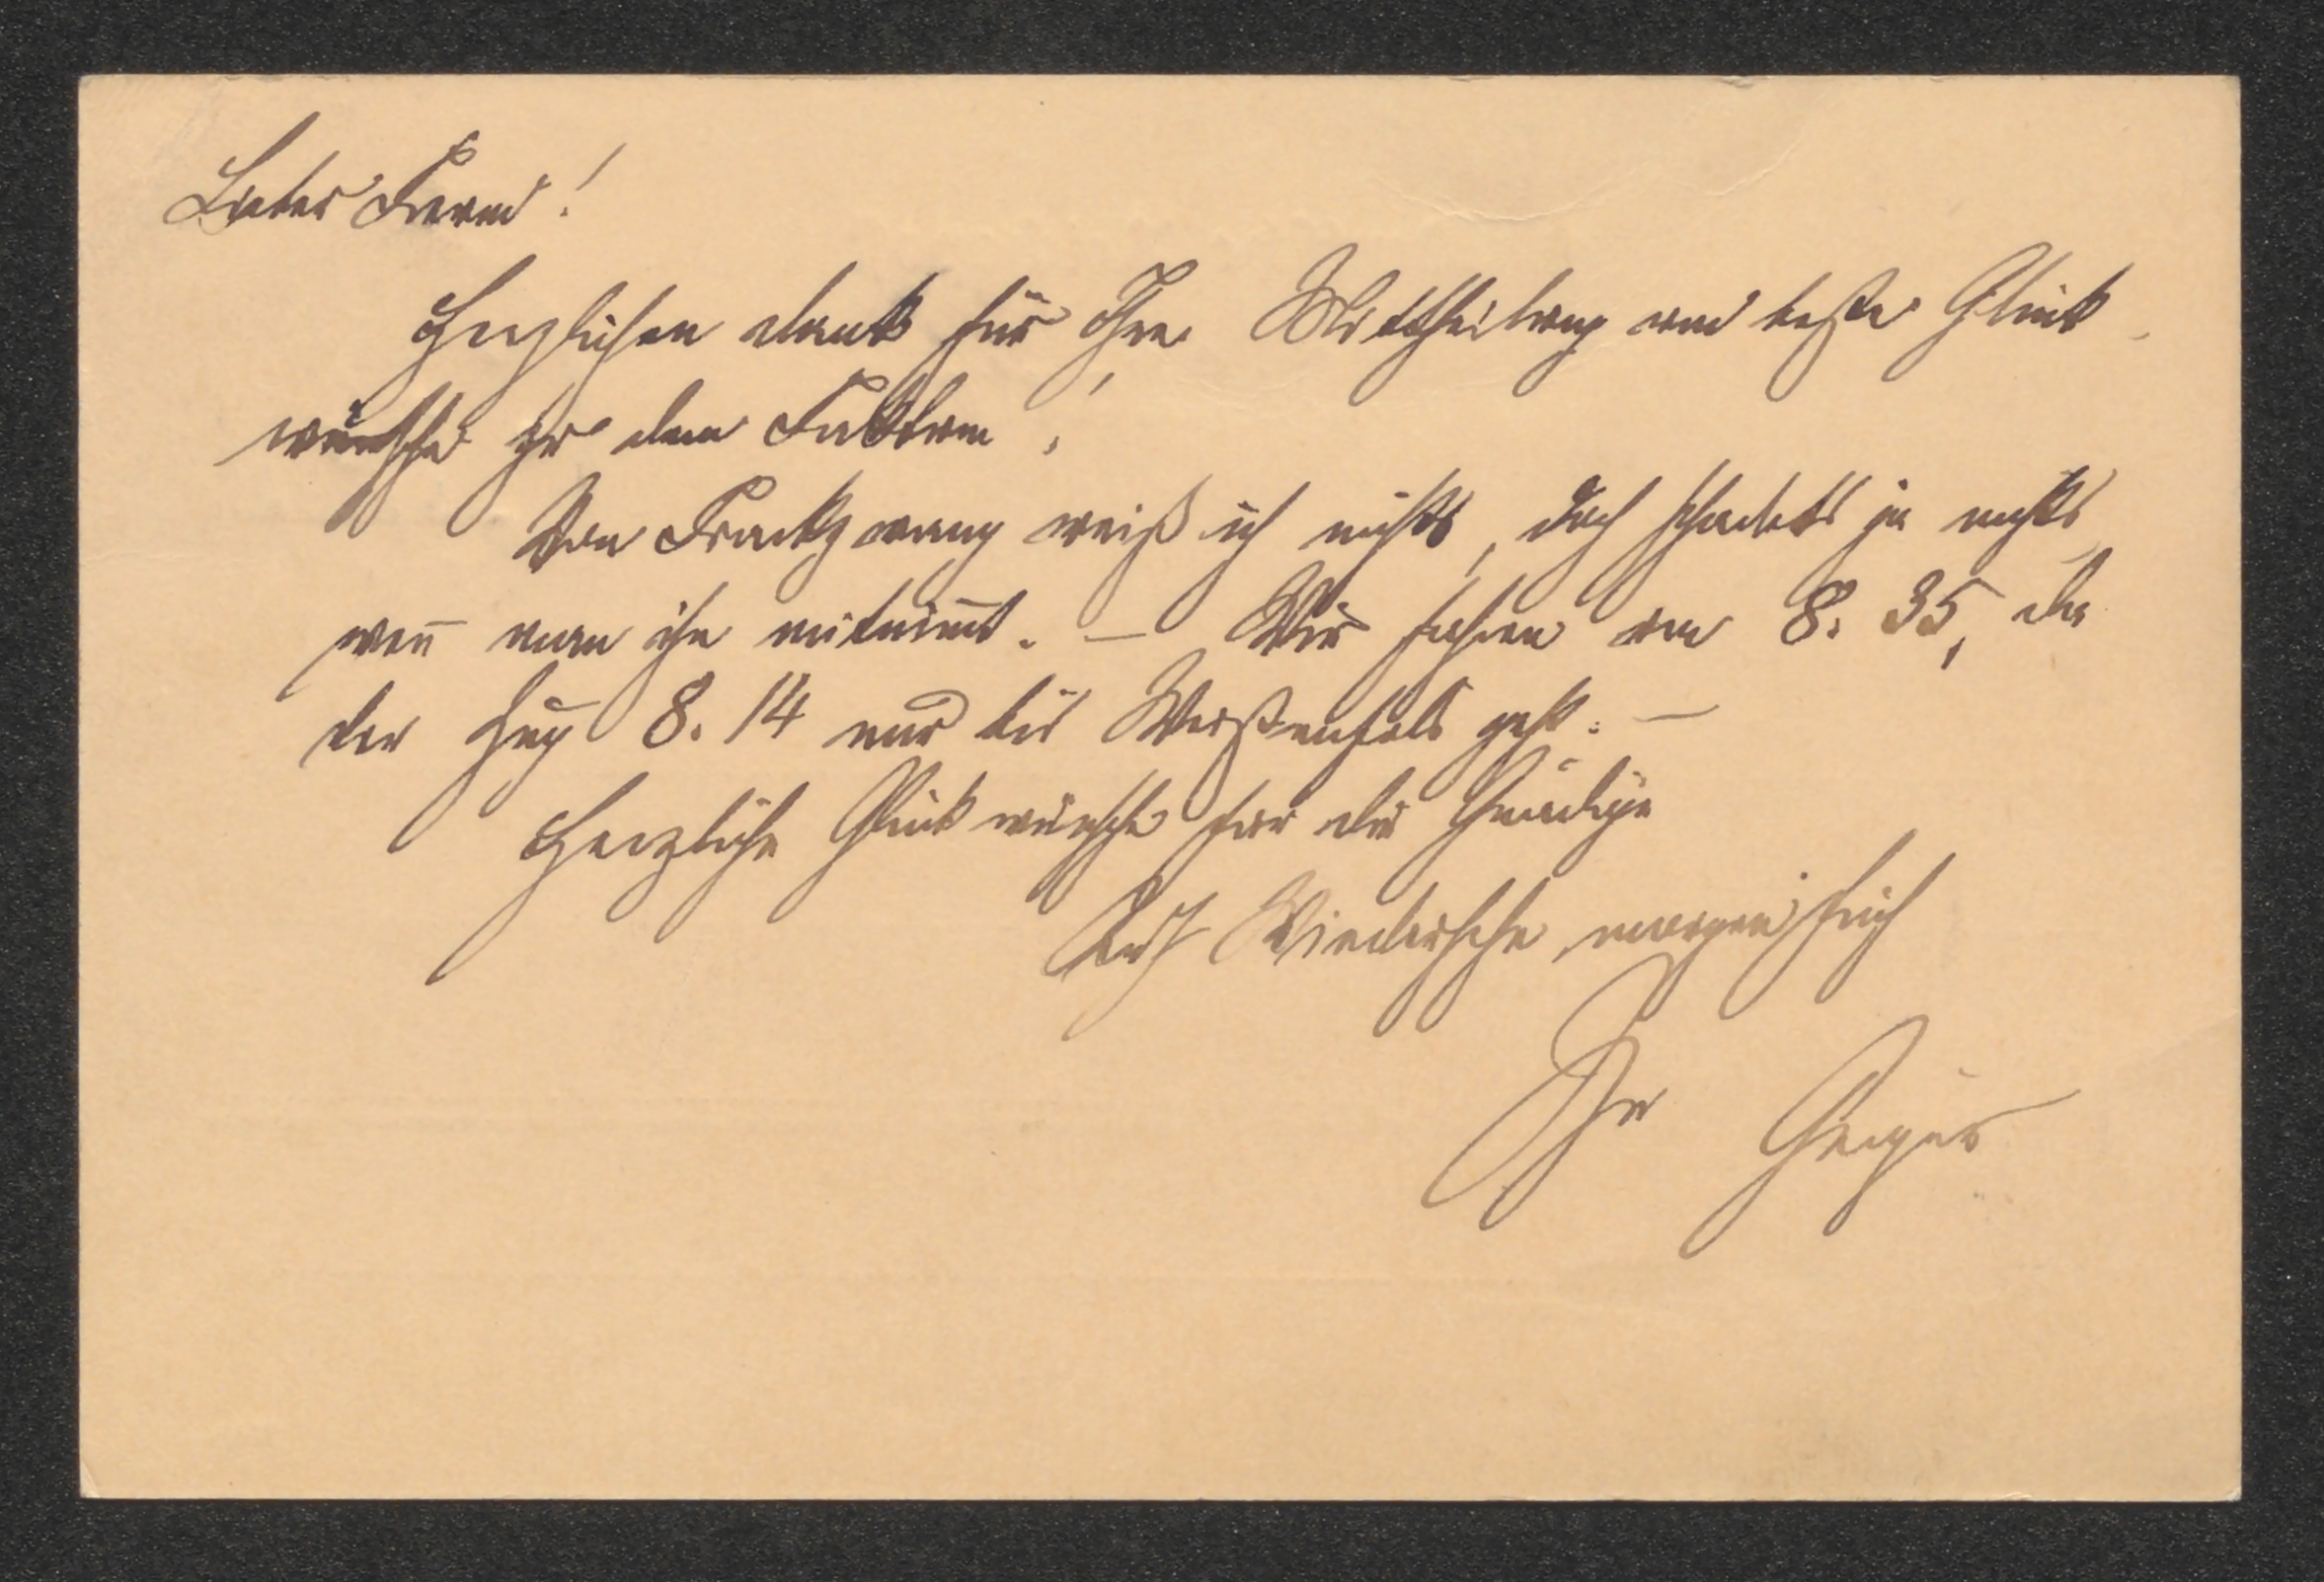 Lieber Freund!
Herzlichen Dank für Ihre Mittheilung und beste Glück-
wünsche zu dem Faktum!
Von Frackzwang weiß ich nichts, doch schadets ja nichts
wen̄ man ihn mitnim̄t. – Wir fahren um 8. 35, da
der Zug 8. 14 nur bis Weißenfels geht. –
Herzliche Glückwünsche für die Gnädige
Auf Wiedersehn morgen früh
Ihr Geiger